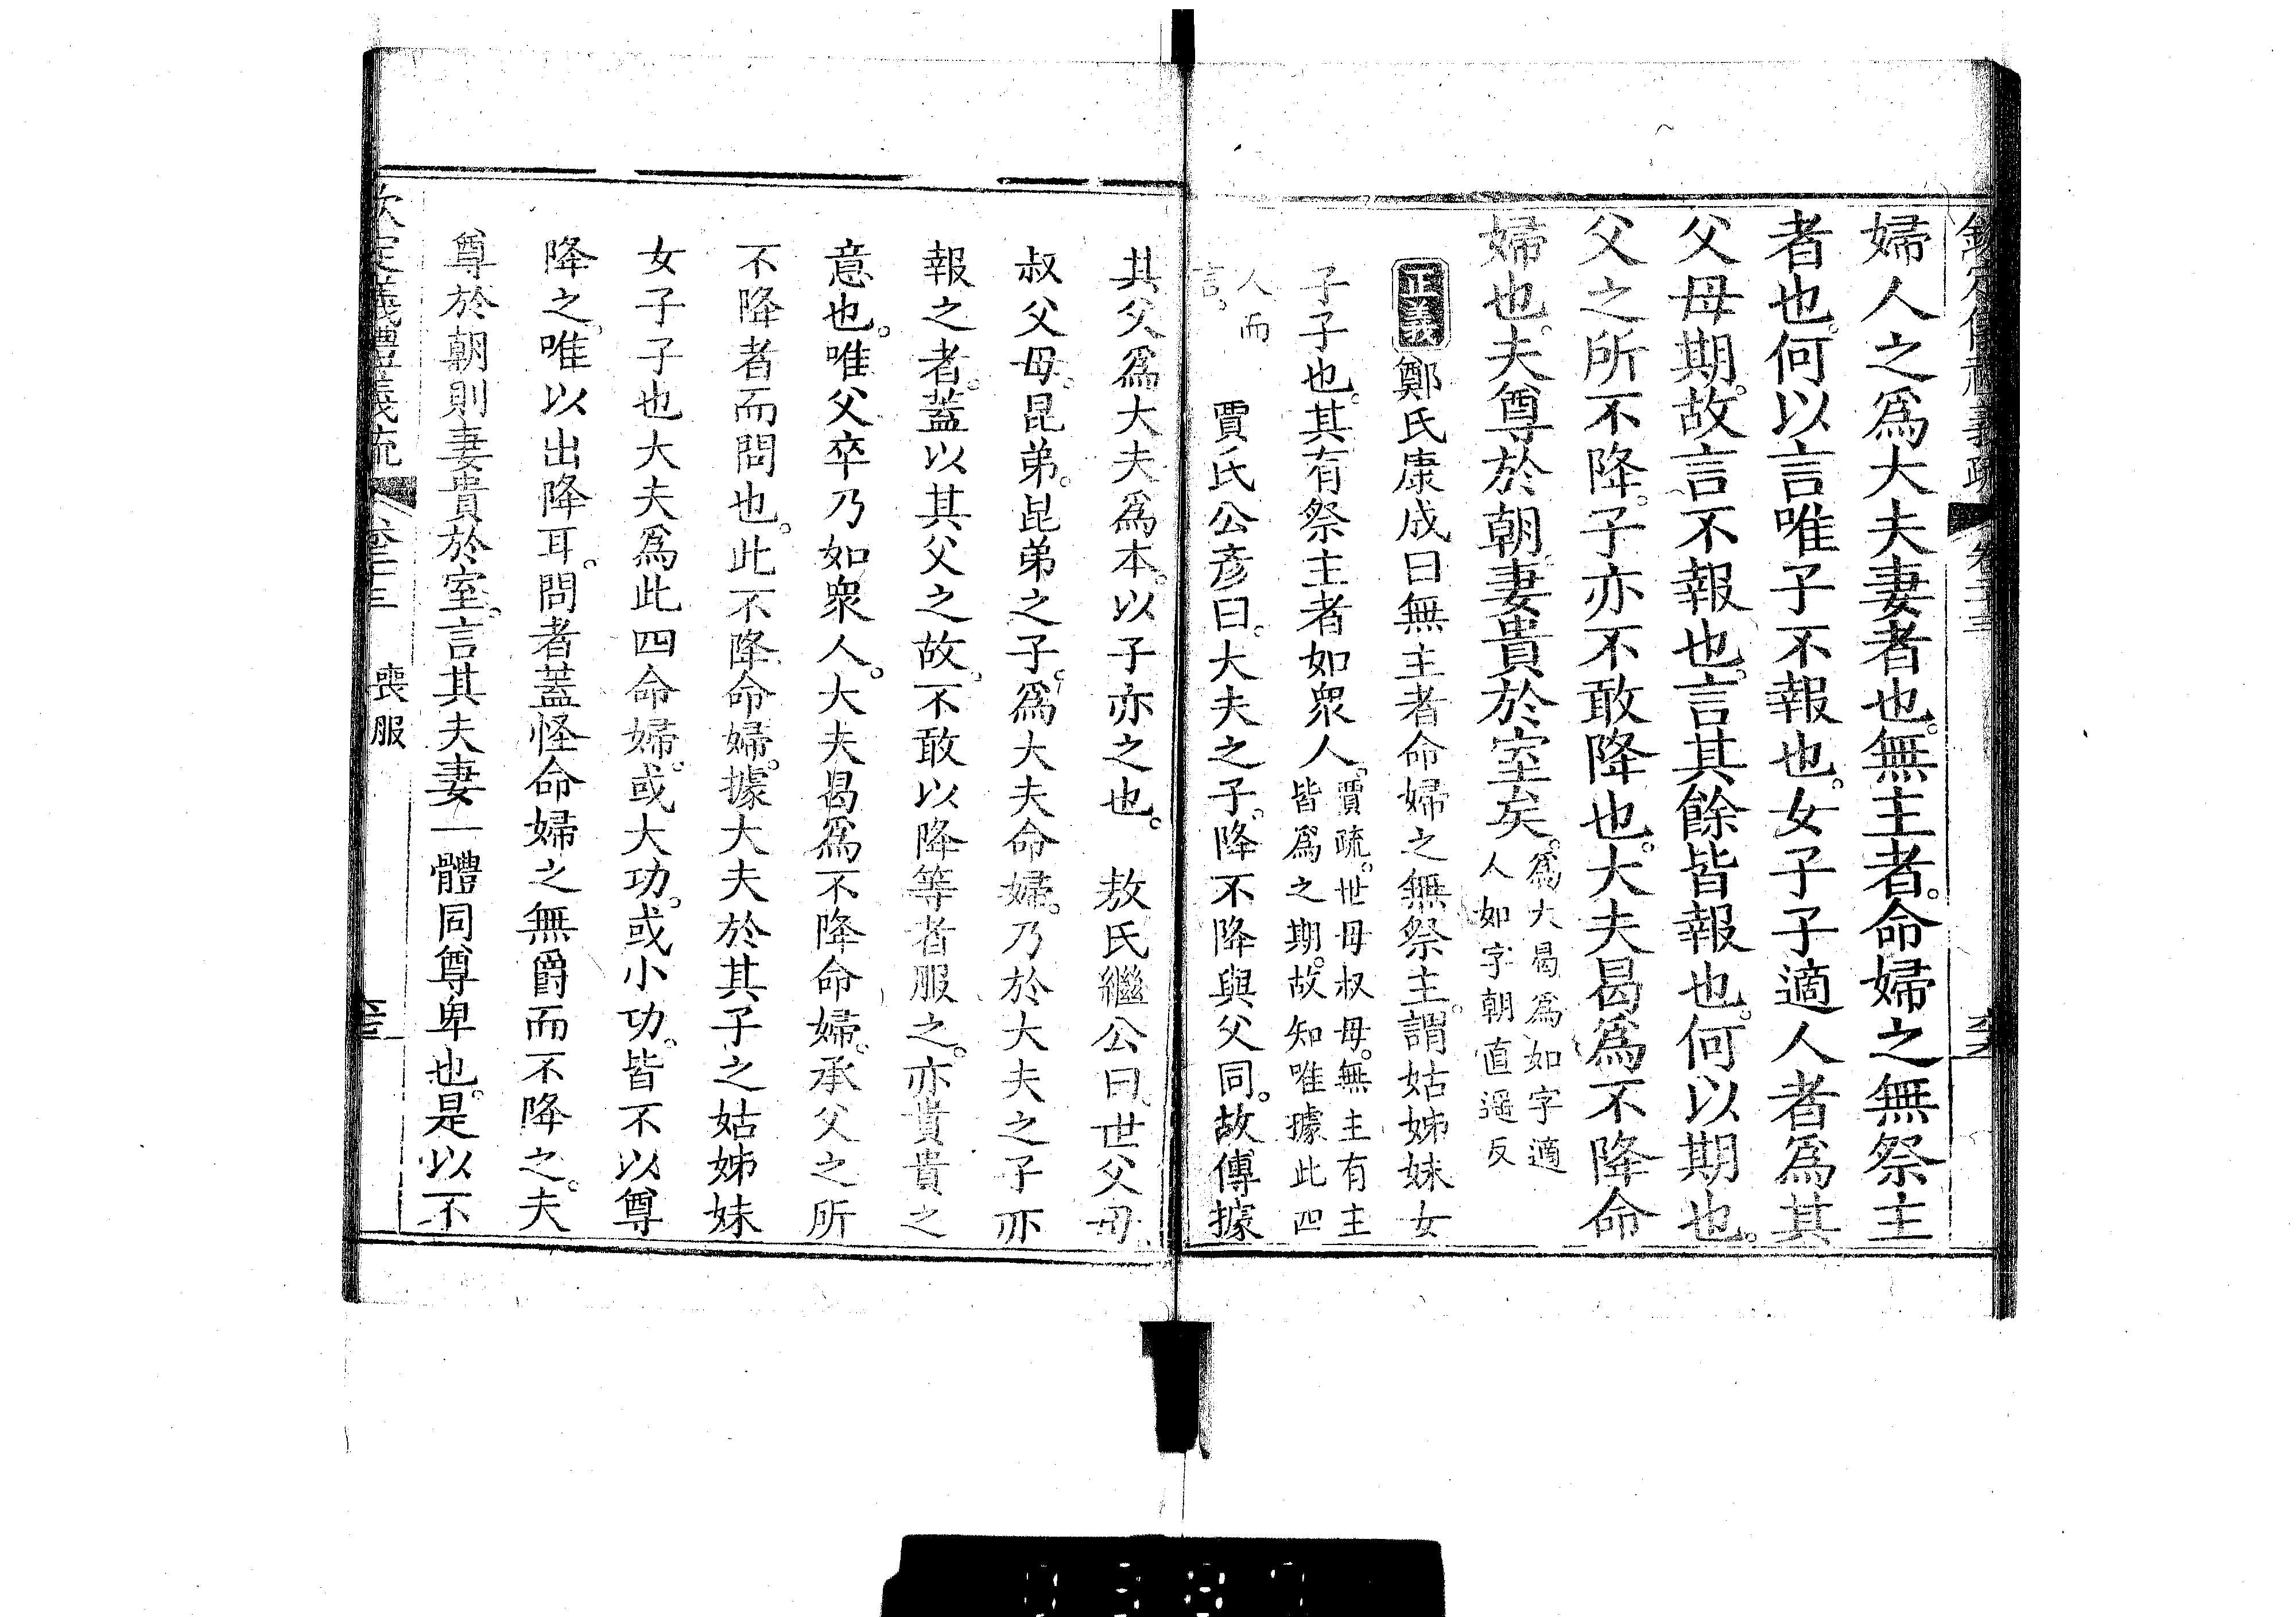 欽定儀禮義疏 卷二十三
婦人之爲大夫妻者也。無主者。命婦之無祭主
者也。何以言唯子不報也。女子子適人者爲其
父母期。故言不報也。言其餘皆報也。何以期也。
父之所不降。子亦不敢降也。大夫曷爲不降命
婦也。夫尊於朝妻貴於室矣。爲大曷爲如字適
人如字朝直遥反
正義 鄭氏康成曰無主者命婦之無祭主。謂姑姊妹女
子子也。其有祭主者如衆人。賈疏。世母叔母。無主有主
皆爲之期。故知唯據此四
人而
言。
賈氏公彥曰。大夫之子。降不降與父同。故傳據
其父爲大夫爲本。以子亦之也。 敖氏繼公曰。世父母。
叔父母。昆弟。昆弟之子。爲大夫命婦。乃於大夫之子亦
報之者。蓋以其父之故。不敢以降等者服之。亦貴貴之
意也。唯父卒乃如衆人。大夫曷爲不降命婦。承父之所
不降者而問也。此不降命婦。據大夫於其子之姑姊妹
女子子也大夫爲此四命婦。或大功。或小功。皆不以尊
降之。唯以出降耳。問者蓋怪命婦之無爵而不降之。夫
尊於朝則妻貴於室。言其夫妻一體同尊卑也。是以不
欽定義禮義疏 卷二十三 喪服